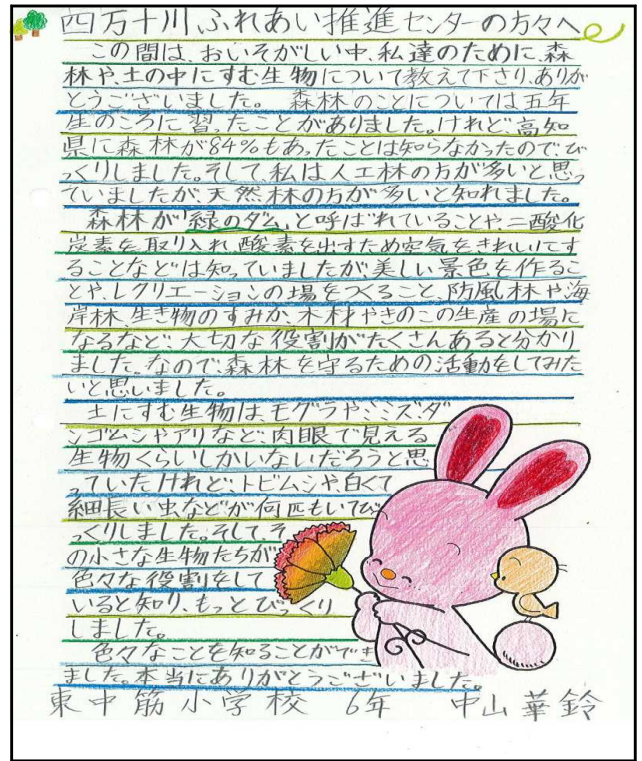 四万十川ふれあい推進センターの方々へ
この間は、おいそがしい中、私達のために、森
林や、土の中にすむ生物について教えて下さり、ありが
とうございました。 森林のことについては五年
生のころに習ったことがありました。けれど、高知
県に森林が84%もあったことは知らなかったので、び
っくりしました。そして、私は人工林の方が多いと思っ
ていましたが、天然林の方が多いと知れました。
森林が「緑のダム」と呼ばれていることや、二酸化
炭素を取り入れ、酸素を出すため空気をきれいにす
ることなどは知っていましたが、美しい景色を作るこ
とや、レクリエーションの場をつくること、防風林や海
岸林、生き物のすみか、木材やきのこの生産の場に
なるなど、大切な役割がたくさんあると分かり
ました。なので、森林を守るための活動をしてみた
いと思いました。
土にすむ生物は、モグラや、ミミズ、ダ
ンゴムシやアリなど、肉眼で見える
生物くらいしかいないだろうと思
っていたけれど、トビムシや、白くて
細長い虫などが何匹もいてび
っくりしました。そして、そ
の小さな生物たちが
色々な役割をして
いると知り、もっとびっくり
しました。
色々なことを知ることができ
ました。本当にありがとうございました。
東中筋小学校 6年 中山華鈴